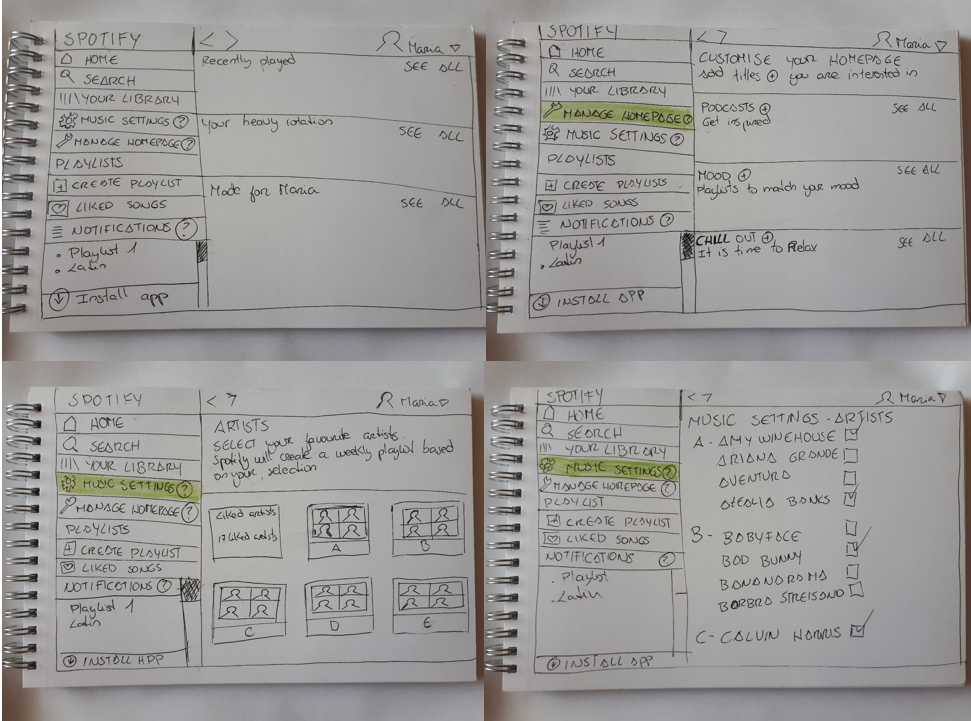 SPOTIFY
HOME
SEARCH
YOUR LIBRARY
MUSIC SETTINGS ?
MANAGE HOMEPAGE ?
PLAYLISTS
CREATE PLAYLIST
LIKED SONGS
NOTIFICATIONS ?
• Playlist 1
• Latin
Install app
< >
Maria
Recently played
SEE ALL
Your heavy rotation
SEE ALL
Made for Maria
SEE ALL
SPOTIFY
HOME
SEARCH
YOUR LIBRARY
MANAGE HOMEPAGE ?
MUSIC SETTINGS ?
PLAYLISTS
CREATE PLAYLISTS
LIKED SONGS
NOTIFICATIONS ?
• Playlist 1
• Latin
INSTALL APP
< >
Maria
CUSTOMISE your HOMEPAGE
add titles + you are interested in
PODCASTS +
SEE ALL
Get inspired
MOOD +
SEE ALL
Playlists to match your mood
CHILL OUT +
SEE ALL
It is time to Relax
SPOTIFY
HOME
SEARCH
YOUR LIBRARY
MUSIC SETTINGS ?
MANAGE HOMEPAGE ?
PLAYLISTS
CREATE PLAYLIST
LIKED SONGS
NOTIFICATIONS ?
Playlist 1
Latin
INSTALL APP
< >
Maria
ARTISTS
SELECT your favourite artists.
Spotify will create a weekly playlist based
on your selection
Liked artists
17 liked artists
A
B
C
D
E
SPOTIFY
HOME
SEARCH
YOUR LIBRARY
MUSIC SETTINGS ?
MANAGE HOMEPAGE ?
PLAYLIST
CREATE PLAYLISTS
LIKED SONGS
NOTIFICATIONS ?
. Playlist
. Latin
INSTALL APP
< >
Maria
MUSIC SETTINGS - ARTISTS
A - AMY WINEHOUSE
ARIANA GRANDE
AVENTURA
AZEALIA BANKS
B - BABYFACE
BAD BUNNY
BANANARAMA
BARBRA STREISAND
C - CALVIN HARRIS